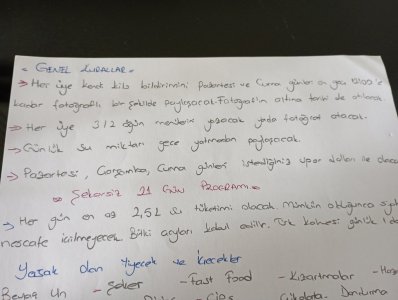 • GENEL KURALLAR •
→ Her üye kendi kilo bildirimini pazartesi ve Cuma günleri en geç
kadar fotoğraflı bir şekilde paylaşacak. Fotoğrafın altına tarihi de atılacak.
→ Her üye 3/2 öğün menülerini yazacak yada fotoğraf atacak.
→ Günlük su miktarı gece yatmadan paylaşacak.
→ Pazartesi, Çarşamba, Cuma günleri istediğiniz spor dalları ile
• Şekersiz 21 GÜN PROGRAMI •
→ Her gün en az 2,5 L su tüketimi olacak. Mümkün olduğunca
nescafe içilmeyecek. Bitki çayları kabul edilir. Türk kahvesi günlük 1
Yasak olan Yiyecek ve İçecekler
Beyaz Un - Şeker - Fast Food - Kızartmalar
- Cips Çikolata Dondurma